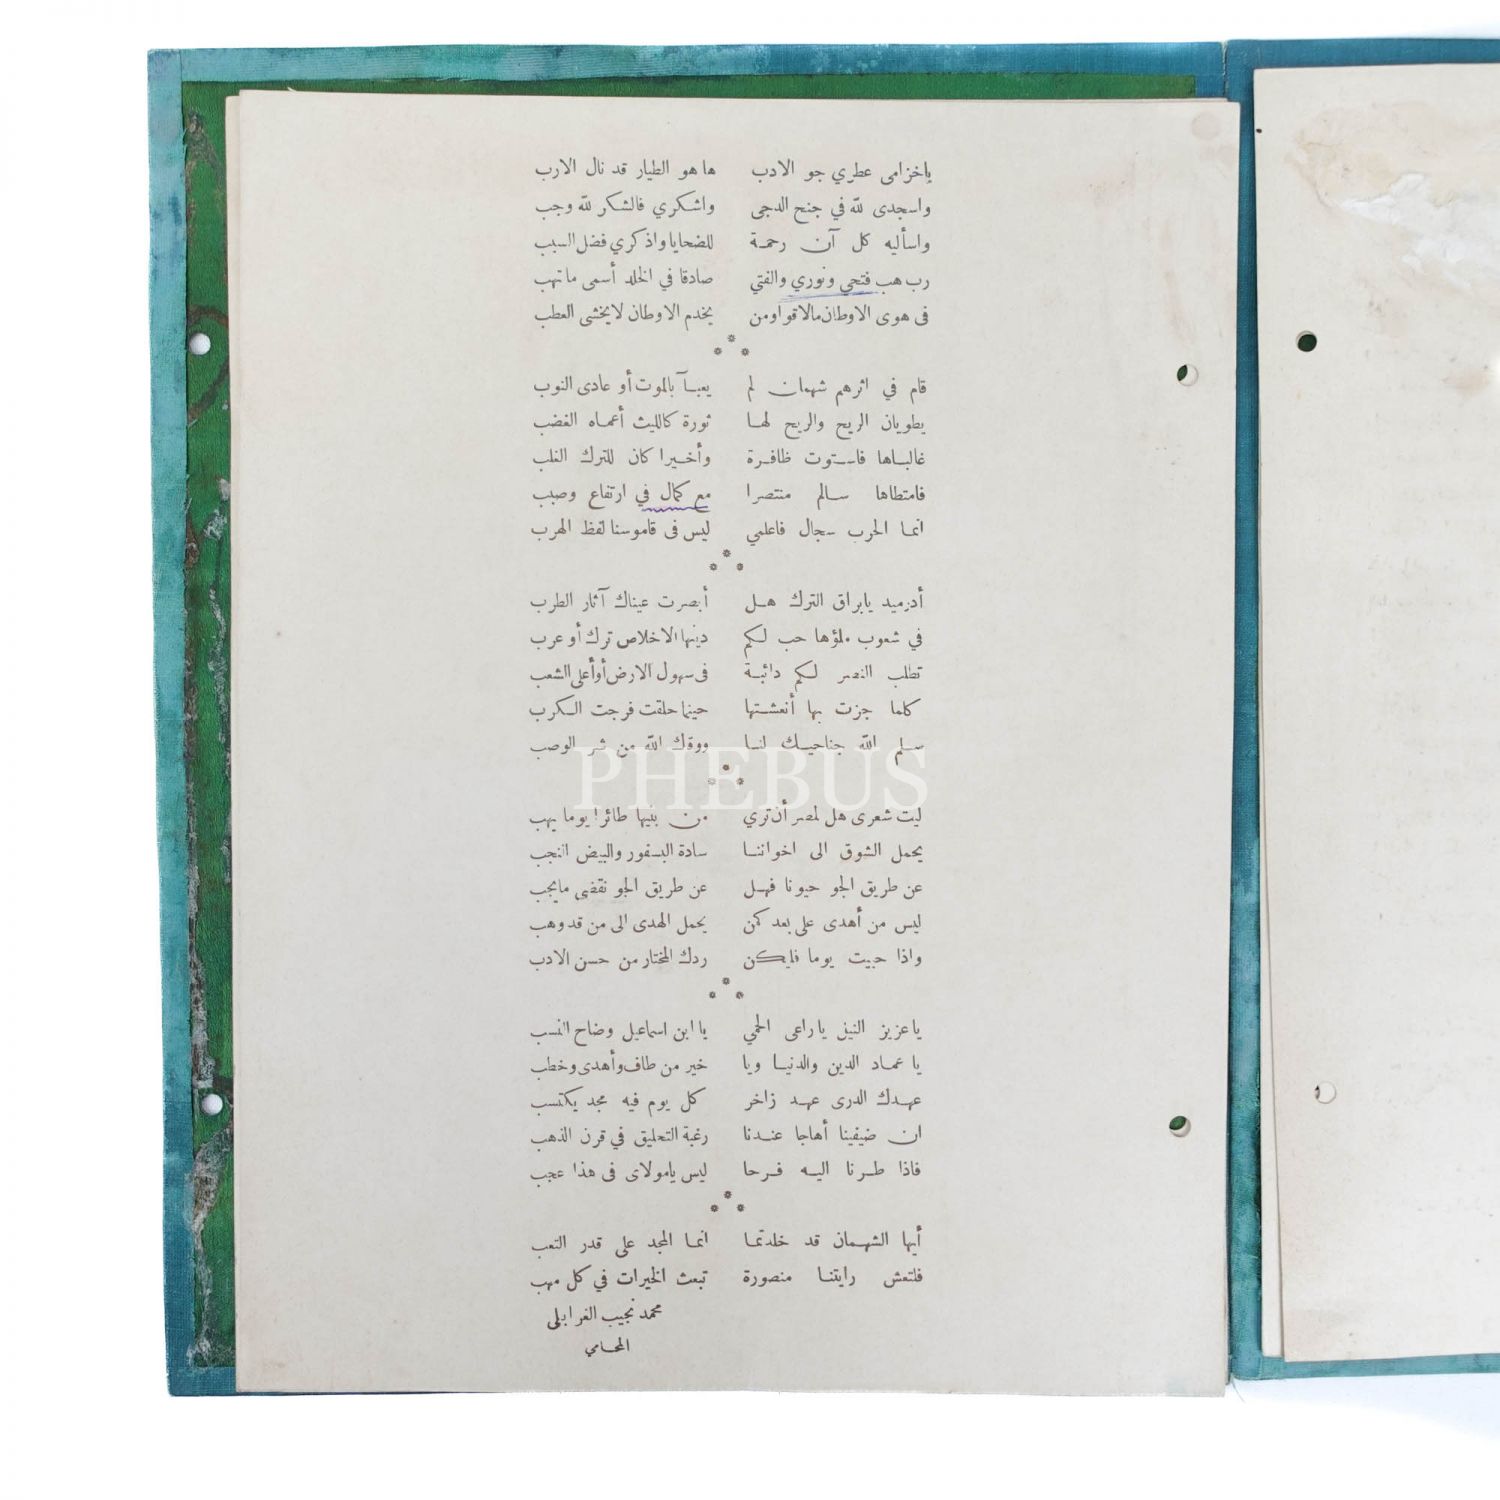 ياخزامى عطري جو الادب ها هو الطيار قد نال الارب
واسجدى لله في جنح الدجى واشكري فالشكر لله وجب
واسأليه كل آن رحمة للضحايا واذكري فضل السبب
رب هب فتحي ونوري والفتي صادقا في الخلد أسمى ماتهب
فى هوى الاوطان مالاقوا ومن يخدم الاوطان لايخشى العطب
قام في اثرهم شهمان لم يعبأ بالموت أو عادى النوب
يطويان الريح والريح لها ثورة كالليث أعماه الغضب
غالباها فاستوت ظافرة وأخيرا كان للترك الغلب
فامتطاها سالم منتصرا مع كمال في ارتفاع وصبب
انما الحرب سجال فاعلمي ليس فى قاموسنا لفظ الهرب
أدرميد يابراق الترك هل أبصرت عيناك آثار الطرب
في شعوب ملؤها حب لكم دينها الاخلاص ترك أو عرب
تطلب النصر لكم دائبة فى سهول الارض أو أعلى الشعب
كلما جزت بها أنعشتها حينما حلقت فرجت الكرب
سلم الله جناحيك لنا ووقاك الله من شر الوصب
PHEBUS
ليت شعرى هل لمصر أن تري من بنيها طائرا يوما يهب
يحمل الشوق الى اخواننا سادة البسفور والبيض النجب
عن طريق الجو حيونا فهل عن طريق الجو نقضى مايجب
ليس من أهدى على بعد كمن يحمل الهدى الى من قد وهب
واذا حييت يوما فليكن ردك المختار من حسن الادب
يا عزيز النيل يا راعى الحمي يا ابن اسماعيل وضاح النسب
يا عماد الدين والدنيا ويا خير من طاف وأهدى وخطب
عهدك الدرى عهد زاخر كل يوم فيه مجد يكتسب
ان ضيفينا أهاجا عندنا رغبة التحليق في قرن الذهب
فاذا طرنا اليه فرحا ليس يامولاى فى هذا عجب
أيها الشهمان قد خلدتما انما المجد على قدر التعب
فلتعش رايتنا منصورة تبعث الخيرات في كل مهب
محمد نجيب الغرابلى
المحامي